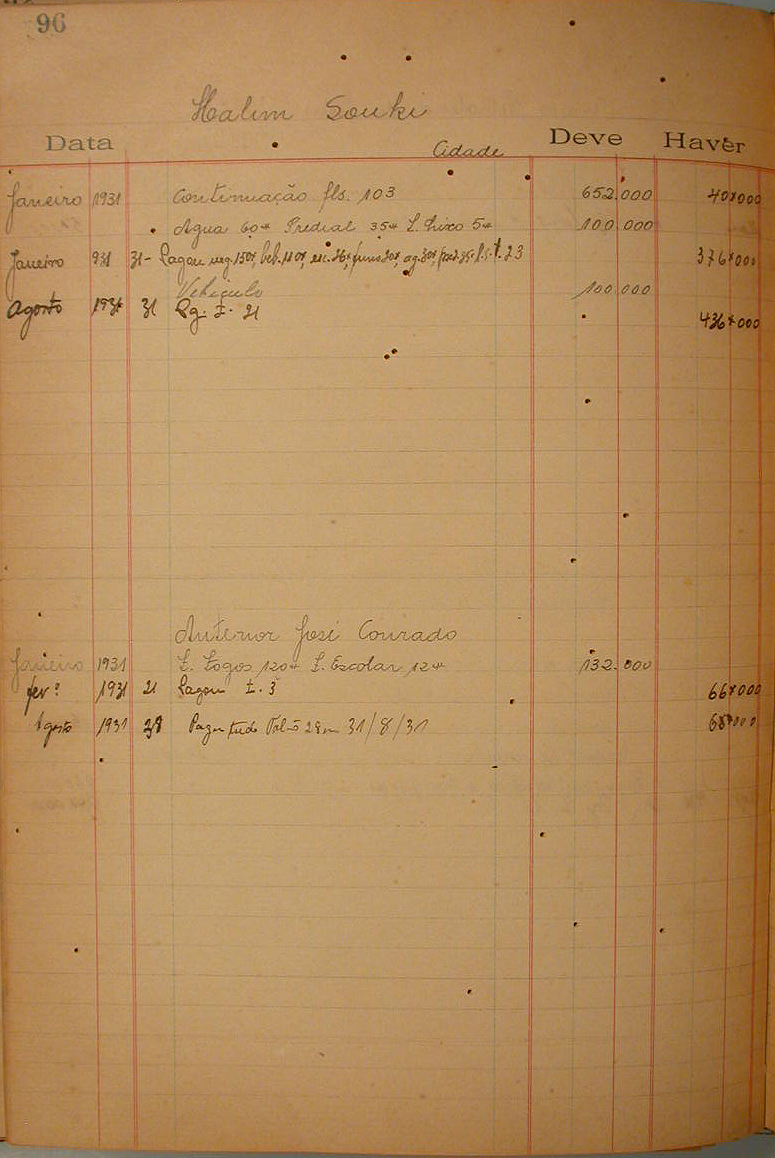 96
Halim Souki
Data Cidade Deve Haver
Janeiro 1931 Continuação fls. 103 652.000 40$000
Agua 60$ Predial 35$ L. Lixo 5$ 100.000
Janeiro 931 31- Pagou neg. 150$, beb. 110$, esc. 26$, fumo 20$, ag. 30$, pred. 35 t. 23 376$000
Vehiculo 100.000
Agosto 1931 31 Pg. t. 21 436$000
Antenor José Conrado
Janeiro 1931 L. Fogos 120$ L. Escolar 12$ 132.000
fevº 1931 21 Pagou t. 3 66$000
Agosto 1931 Pagou tudo Talão 28 em 31/8/31